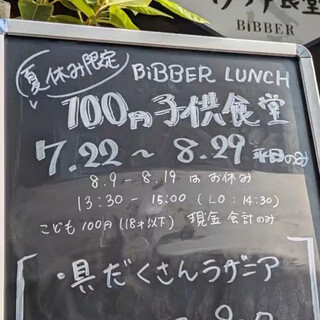 食堂
BiBBER
夏休み限定
BiBBER LUNCH
100円子供食堂
7.22 ~ 8.29 平日のみ
8.9 - 8.19 は お休み
13:30 - 15:00 (LO:14:30)
こども100円(18才以下) 現金会計のみ
・具だくさんラザニア